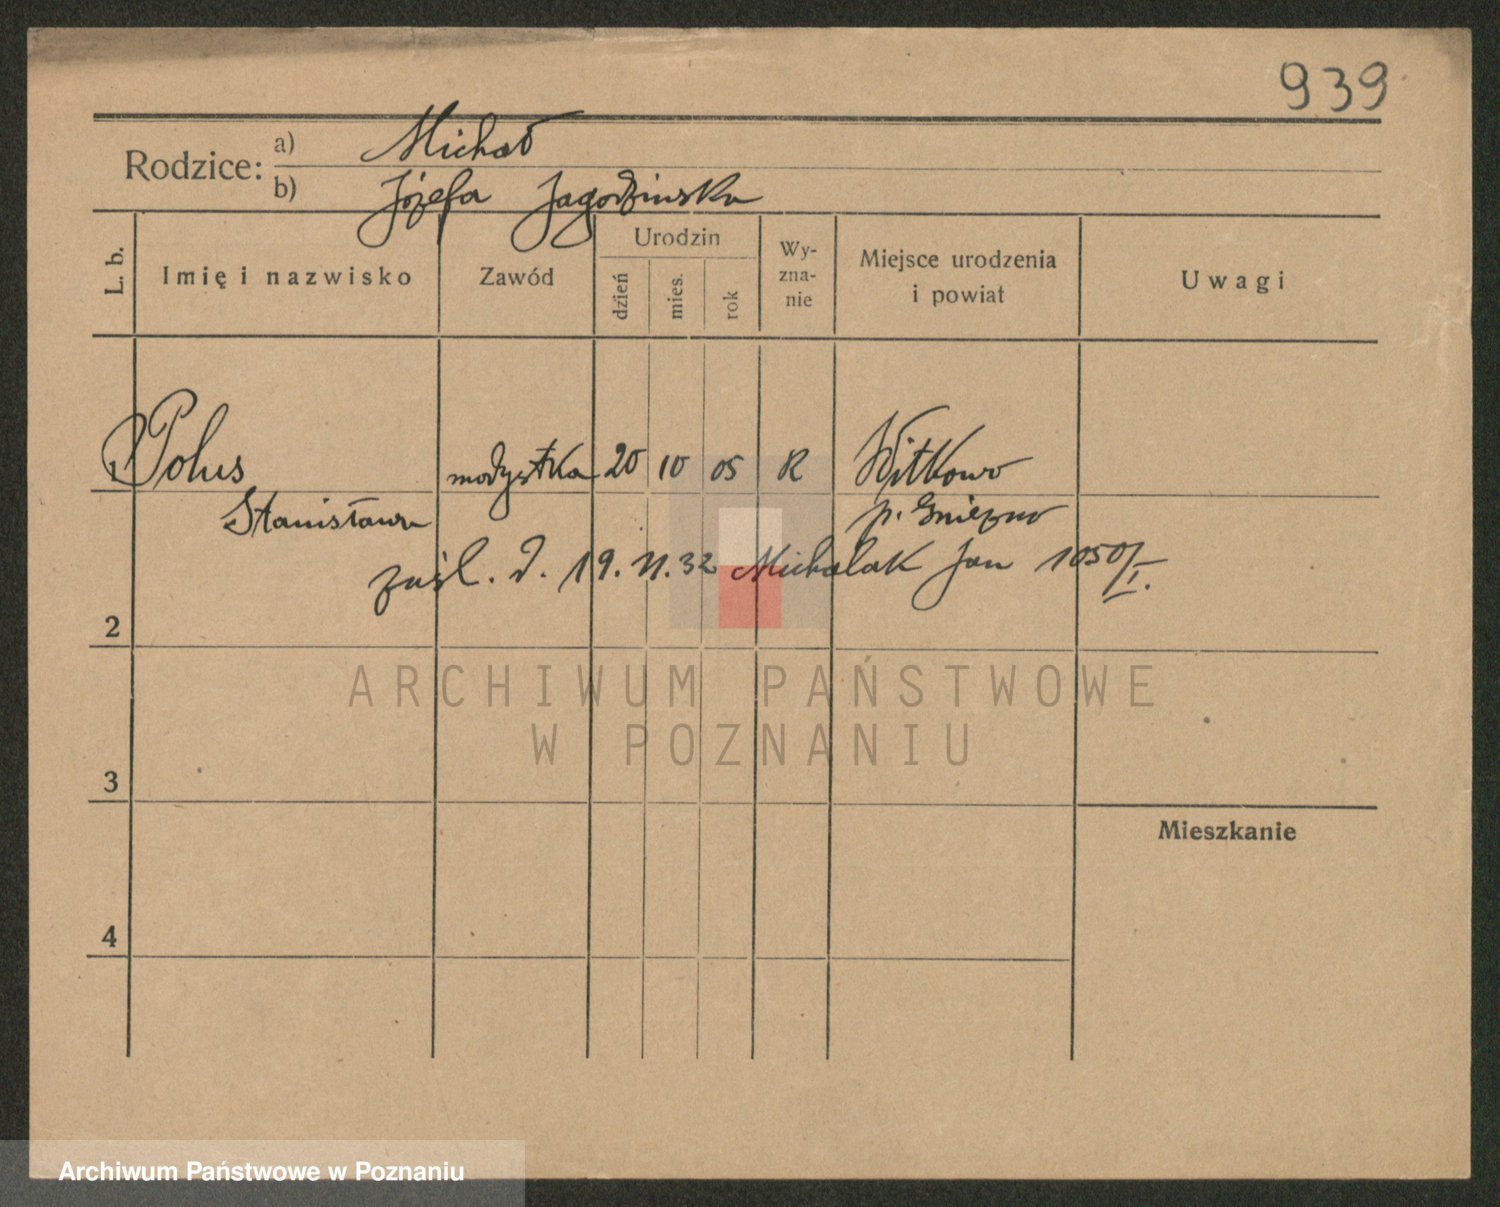 939
Rodzice: a) Michał
b) Józefa Jagodzinska
L. b. Imię i nazwisko Zawód Urodzin dzień mies. rok Wy-zna-nie Miejsce urodzenia i powiat Uwagi
1 Polus modystka 20 10 05 R Witkowo
Stanisława p. Gniezno
zaśl. d. 19. 11. 32 Michalak Jan 1050/I.
2
ARCHIWUM PAŃSTWOWE
W POZNANIU
3
Mieszkanie
4
Archiwum Państwowe w Poznaniu